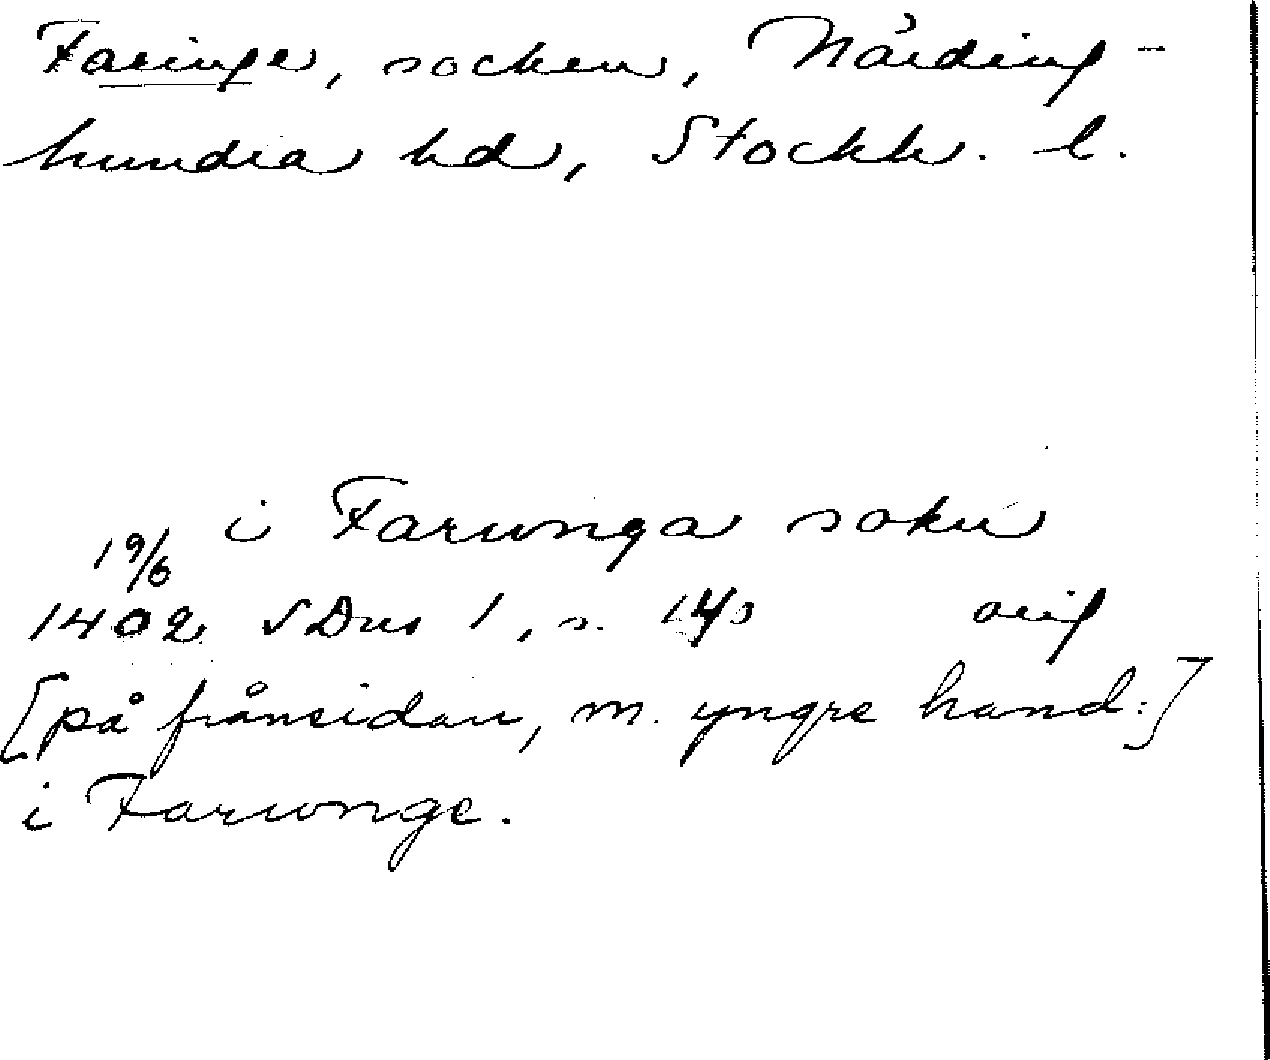 Faringe, socken, Närding-
hundra hd, Stockh. l.
i Farunga sokn
19/6
1402 SDns 1, s. orig
[på frånsidan, m. yngre hand:]
i Farunge.